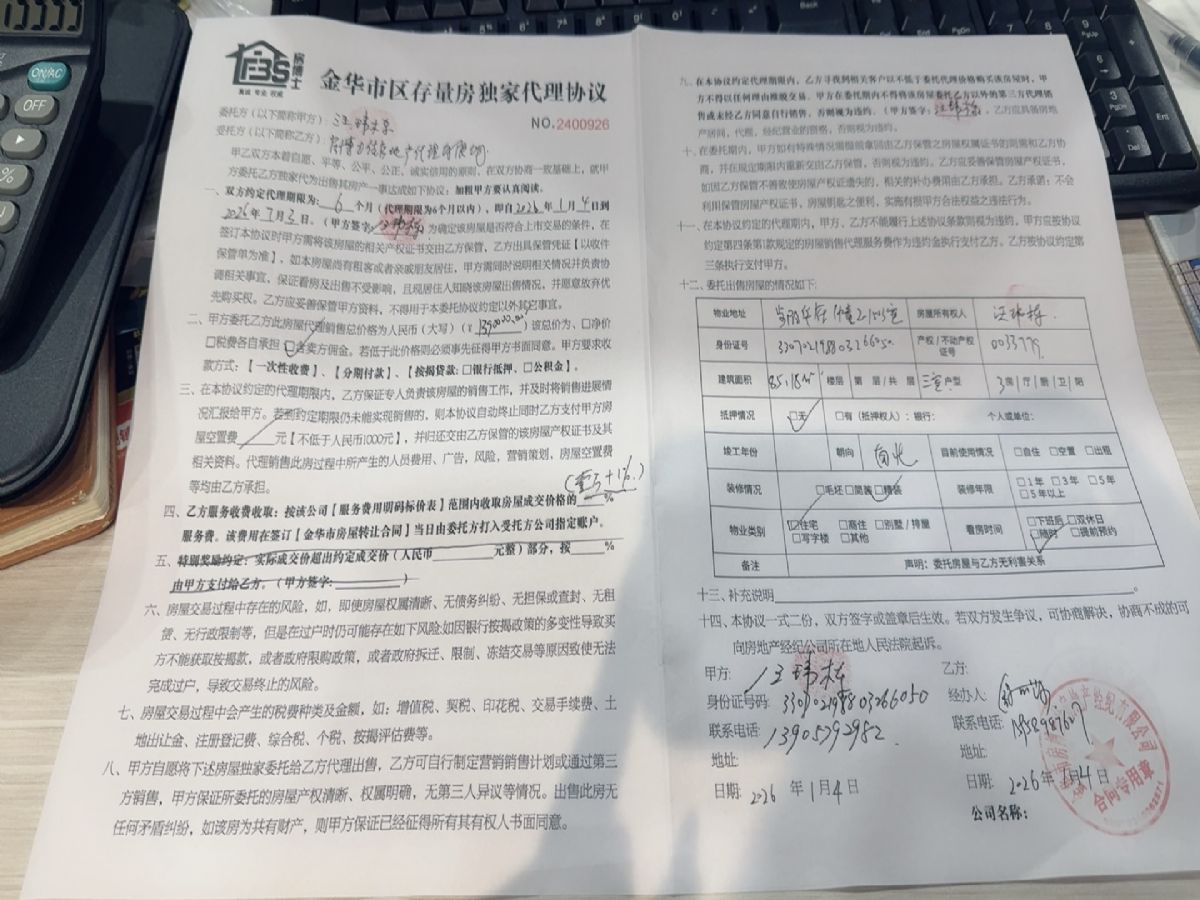 FBS
房博士
专业 权威
金华市区存量房独家代理协议
NO.2400926
委托方（以下简称甲方）：汪
受托方（以下简称乙方）：
甲乙双方本着自愿、平等、公平、公正、诚实信用的原则，在双方协商一致基础上，就甲
方委托乙方独家代为出售其房产一事达成如下协议；加粗甲方要认真阅读。
一、双方约定代理期限为：6个月（代理期限为6个月以内），即自2026年1月4日到
2026年7月3日。（甲方签字： ）为确定该房屋是否符合上市交易的条件，在
签订本协议时甲方需将该房屋的相关产权证书交由乙方保管，乙方出具保管凭证【以收件
保管单为准】，如本房屋尚有租客或者亲戚朋友居住，甲方需同时说明相关情况并负责协
调相关事宜，保证看房及出售不受影响，且现居住人知晓该房屋出售情况，并愿意放弃优
先购买权。乙方应妥善保管甲方资料，不得用于本委托协议约定以外其它事宜。
二、甲方委托乙方此房屋代理销售总价格为人民币（大写）（¥1390000.00）该总价为、□净价
□税费各自承担 □含卖方佣金。若低于此价格则必须事先征得甲方书面同意。甲方要求收
款方式：【一次性收费】、【分期付款】、【按揭贷款：□银行抵押、□公积金】。
三、在本协议约定的代理期限内，乙方保证专人负责该房屋的销售工作，并及时将销售进展情
况汇报给甲方。若到约定期限仍未能实现销售的，则本协议自动终止同时乙方支付甲方房
屋空置费 元【不低于人民币1000元】，并归还交由乙方保管的该房屋产权证书及其
相关资料。代理销售此房过程中所产生的人员费用、广告，风险，营销策划，房屋空置费
等均由乙方承担。
四、乙方服务收费收取：按该公司【服务费用明码标价表】范围内收取房屋成交价格的 %
服务费。该费用在签订【金华市房屋转让合同】当日由委托方打入受托方公司指定账户。
五、特别奖励约定：实际成交价超出约定成交价（人民币 元整）部分，按 %
由甲方支付给乙方。（甲方签字： ）
六、房屋交易过程中存在的风险，如，即使房屋权属清晰、无债务纠纷、无担保或查封、无租
赁、无行政限制等，但是在过户时仍可能存在如下风险:如因银行按揭政策的多变性导致买
方不能获取按揭款，或者政府限购政策，或者政府拆迁、限制、冻结交易等原因致使无法
完成过户，导致交易终止的风险。
七、房屋交易过程中会产生的税费种类及金额，如：增值税、契税、印花税、交易手续费、土
地出让金、注册登记费、综合税、个税、按揭评估费等。
八、甲方自愿将下述房屋独家委托给乙方代理出售，乙方可自行制定营销销售计划或通过第三
方销售，甲方保证所委托的房屋产权清晰、权属明确，无第三人异议等情况。出售此房无
任何矛盾纠纷，如该房为共有财产，则甲方保证已经征得所有其有权人书面同意。
九、在本协议约定代理期限内，乙方寻找到相关客户以不低于委托代理价格购买该房屋时，甲
方不得以任何理由推脱交易。甲方在委托期内不得将该房屋委托乙方以外的第三方代理销
售或未经乙方同意自行销售，否则视为违约。（甲方签字： ），乙方应具备房地
产居间，代理，经纪营业的资格，否则视为违约。
十、在委托期内，甲方如有特殊情况需提前拿回由乙方保管之房屋权属证书的则需和乙方协
商，并在规定期限内重新交由乙方保管，否则视为违约。乙方应妥善保管房屋产权证书，
如因乙方保管不善致使房屋产权证遗失的，相关的补办费用由乙方承担。乙方承诺：不会
利用保管房屋产权证书，房屋钥匙之便利，实施有损甲方合法权益之违法行为。
十一、在本协议约定的代理期内，甲方、乙方不能履行上述协议条款则视为违约，甲方应按协议
约定第四条第1款规定的房屋销售代理服务费作为违约金执行支付乙方。乙方按协议约定第
三条执行支付甲方。
十二、委托出售房屋的情况如下:
物业地址 房屋所有权人
身份证号 产权/不动产权证号 0033779
建筑面积 85.18m² 楼层 第 层/共 层 三室 户型 3房/厅/厕/卫/阳
抵押情况 □无 □有（抵押权人）：银行： 个人或单位：
竣工年份 朝向 目前使用情况 □自住 □空置 □出租
装修情况 □毛坯 □简装 □精装 装修年限 □1年 □3年 □5年 □5年以上
物业类别 □住宅 □商住 □别墅/排屋 □写字楼 □其他 看房时间 □下班后 □双休日 □随时 □提前预约
备注 声明：委托房屋与乙方无利害关系
十三、补充说明 。
十四、本协议一式二份，双方签字或盖章后生效。若双方发生争议，可协商解决，协商不成的可
向房地产经纪公司所在地人民法院起诉。
甲方: 汪
乙方:
身份证号码:
经办人:
联系电话: 13905792982
联系电话:
地址:
地址:
日期: 2026年1月4日
日期: 2026年1月4日
公司名称:
合同专用章